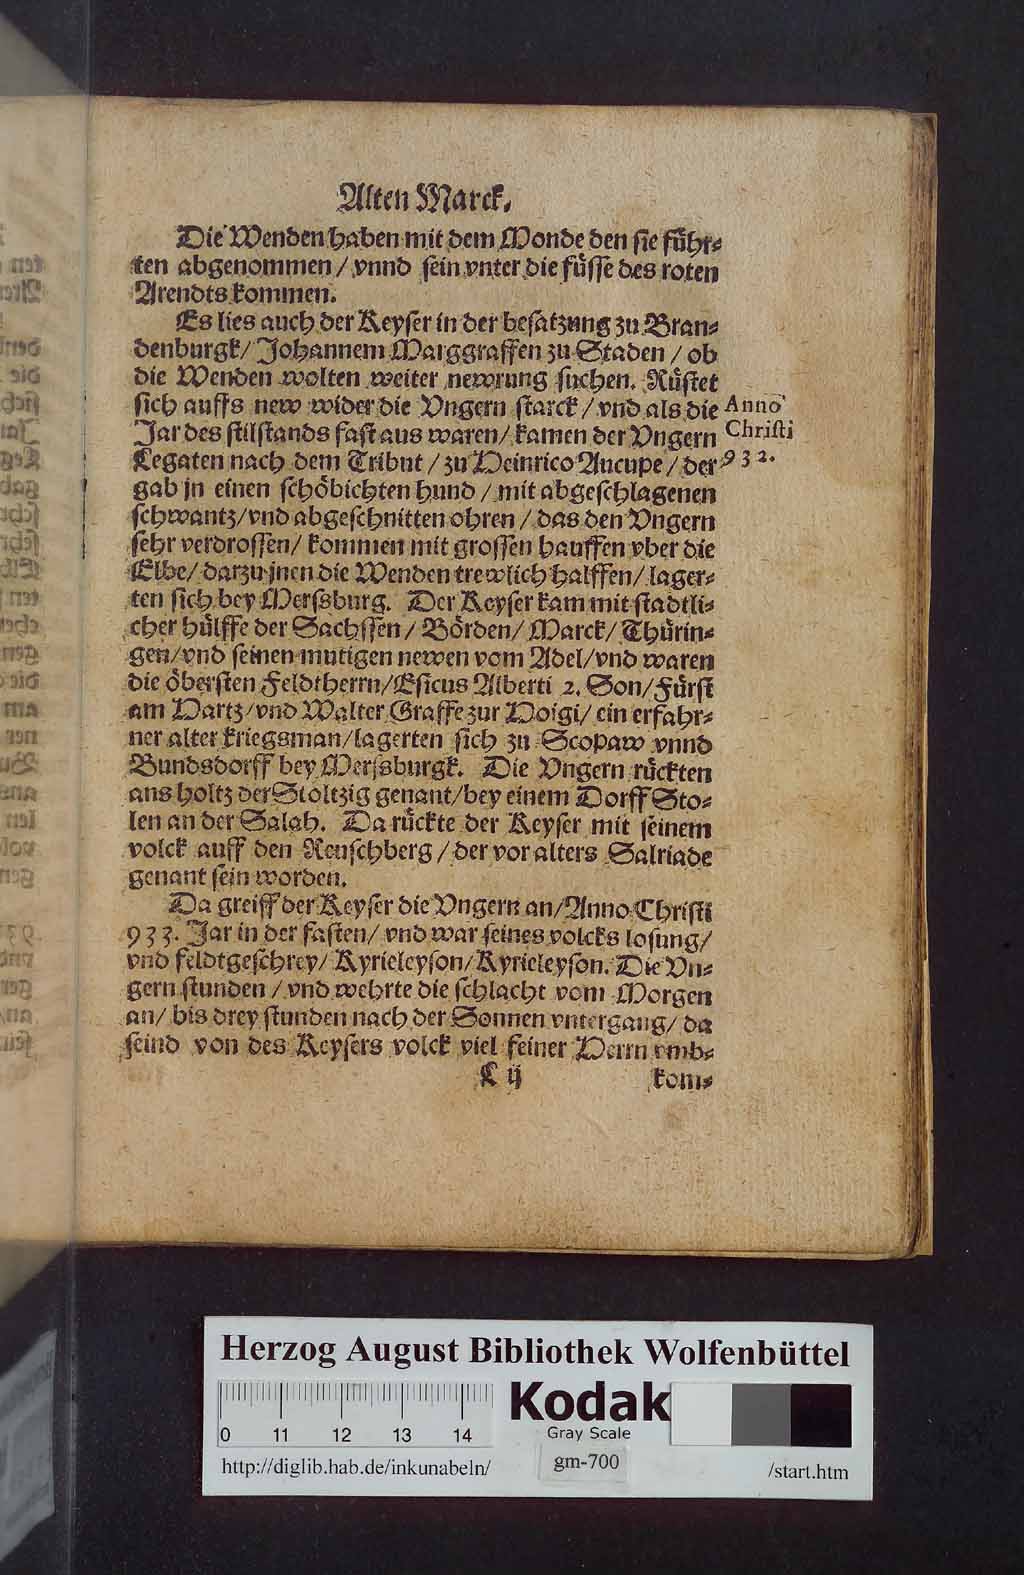 Alten Marck.
Die Wenden haben mit dem Monde den sie führ-
ten abgenommen / vnnd sein vnter die füsse des roten
Arendts kommen.
Es lies auch der Keyser in der besatzung zu Bran-
denburgk / Johannem Marggraffen zu Staden / ob
die Wenden wolten weiter newrung suchen. Rüstet
sich auffs new wider die Vngern starck / vnd als die
Jar des stilstands fast aus waren / kamen der Vngern
Legaten nach dem Tribut / zu Heinrico Aucupe / der
gab jn einen schöbichten hund / mit abgeschlagenen
schwantz / vnd abgeschnitten ohren / das den Vngern
sehr verdrossen / kommen mit grossen hauffen vber die
Elbe / darzu jnen die Wenden trewlich halffen / lager-
ten sich bey Mersburg. Der Keyser kam mit stadtli-
cher hülffe der Sachssen / Börden / Marck / Thürin-
gen / vnd seinen mutigen newen vom Adel / vnd waren
die öbersten Feldtherrn / Esicus Alberti 2. Son / Fürst
am Hartz / vnd Walter Graffe zur Hoigi / ein erfahr-
ner alter kriegsman / lagerten sich zu Scopaw vnnd
Bundsdorff bey Mersburgk. Die Vngern rückten
ans holtz der Stoltzig genant / bey einem Dorff Sto-
len an der Salah. Da rückte der Keyser mit seinem
volck auff den Reuschberg / der vor alters Salriade
genant sein worden.
Da greiff der Keyser die Vngern an / Anno Christi
933. Jar in der fasten / vnd war seines volcks losung /
vnd feldtgeschrey / Kyrieleyson / Kyrieleyson. Die Vn-
gern stunden / vnd wehrte die schlacht vom Morgen
an / bis drey stunden nach der Sonnen vntergang / da
seind von des Keysers volck viel feiner Herrn vmb-
C ij kom-
Anno
Christi
932.
Herzog August Bibliothek Wolfenbüttel
Kodak
Gray Scale
0 11 12 13 14
gm-700
http://diglib.hab.de/inkunabeln/ /start.htm